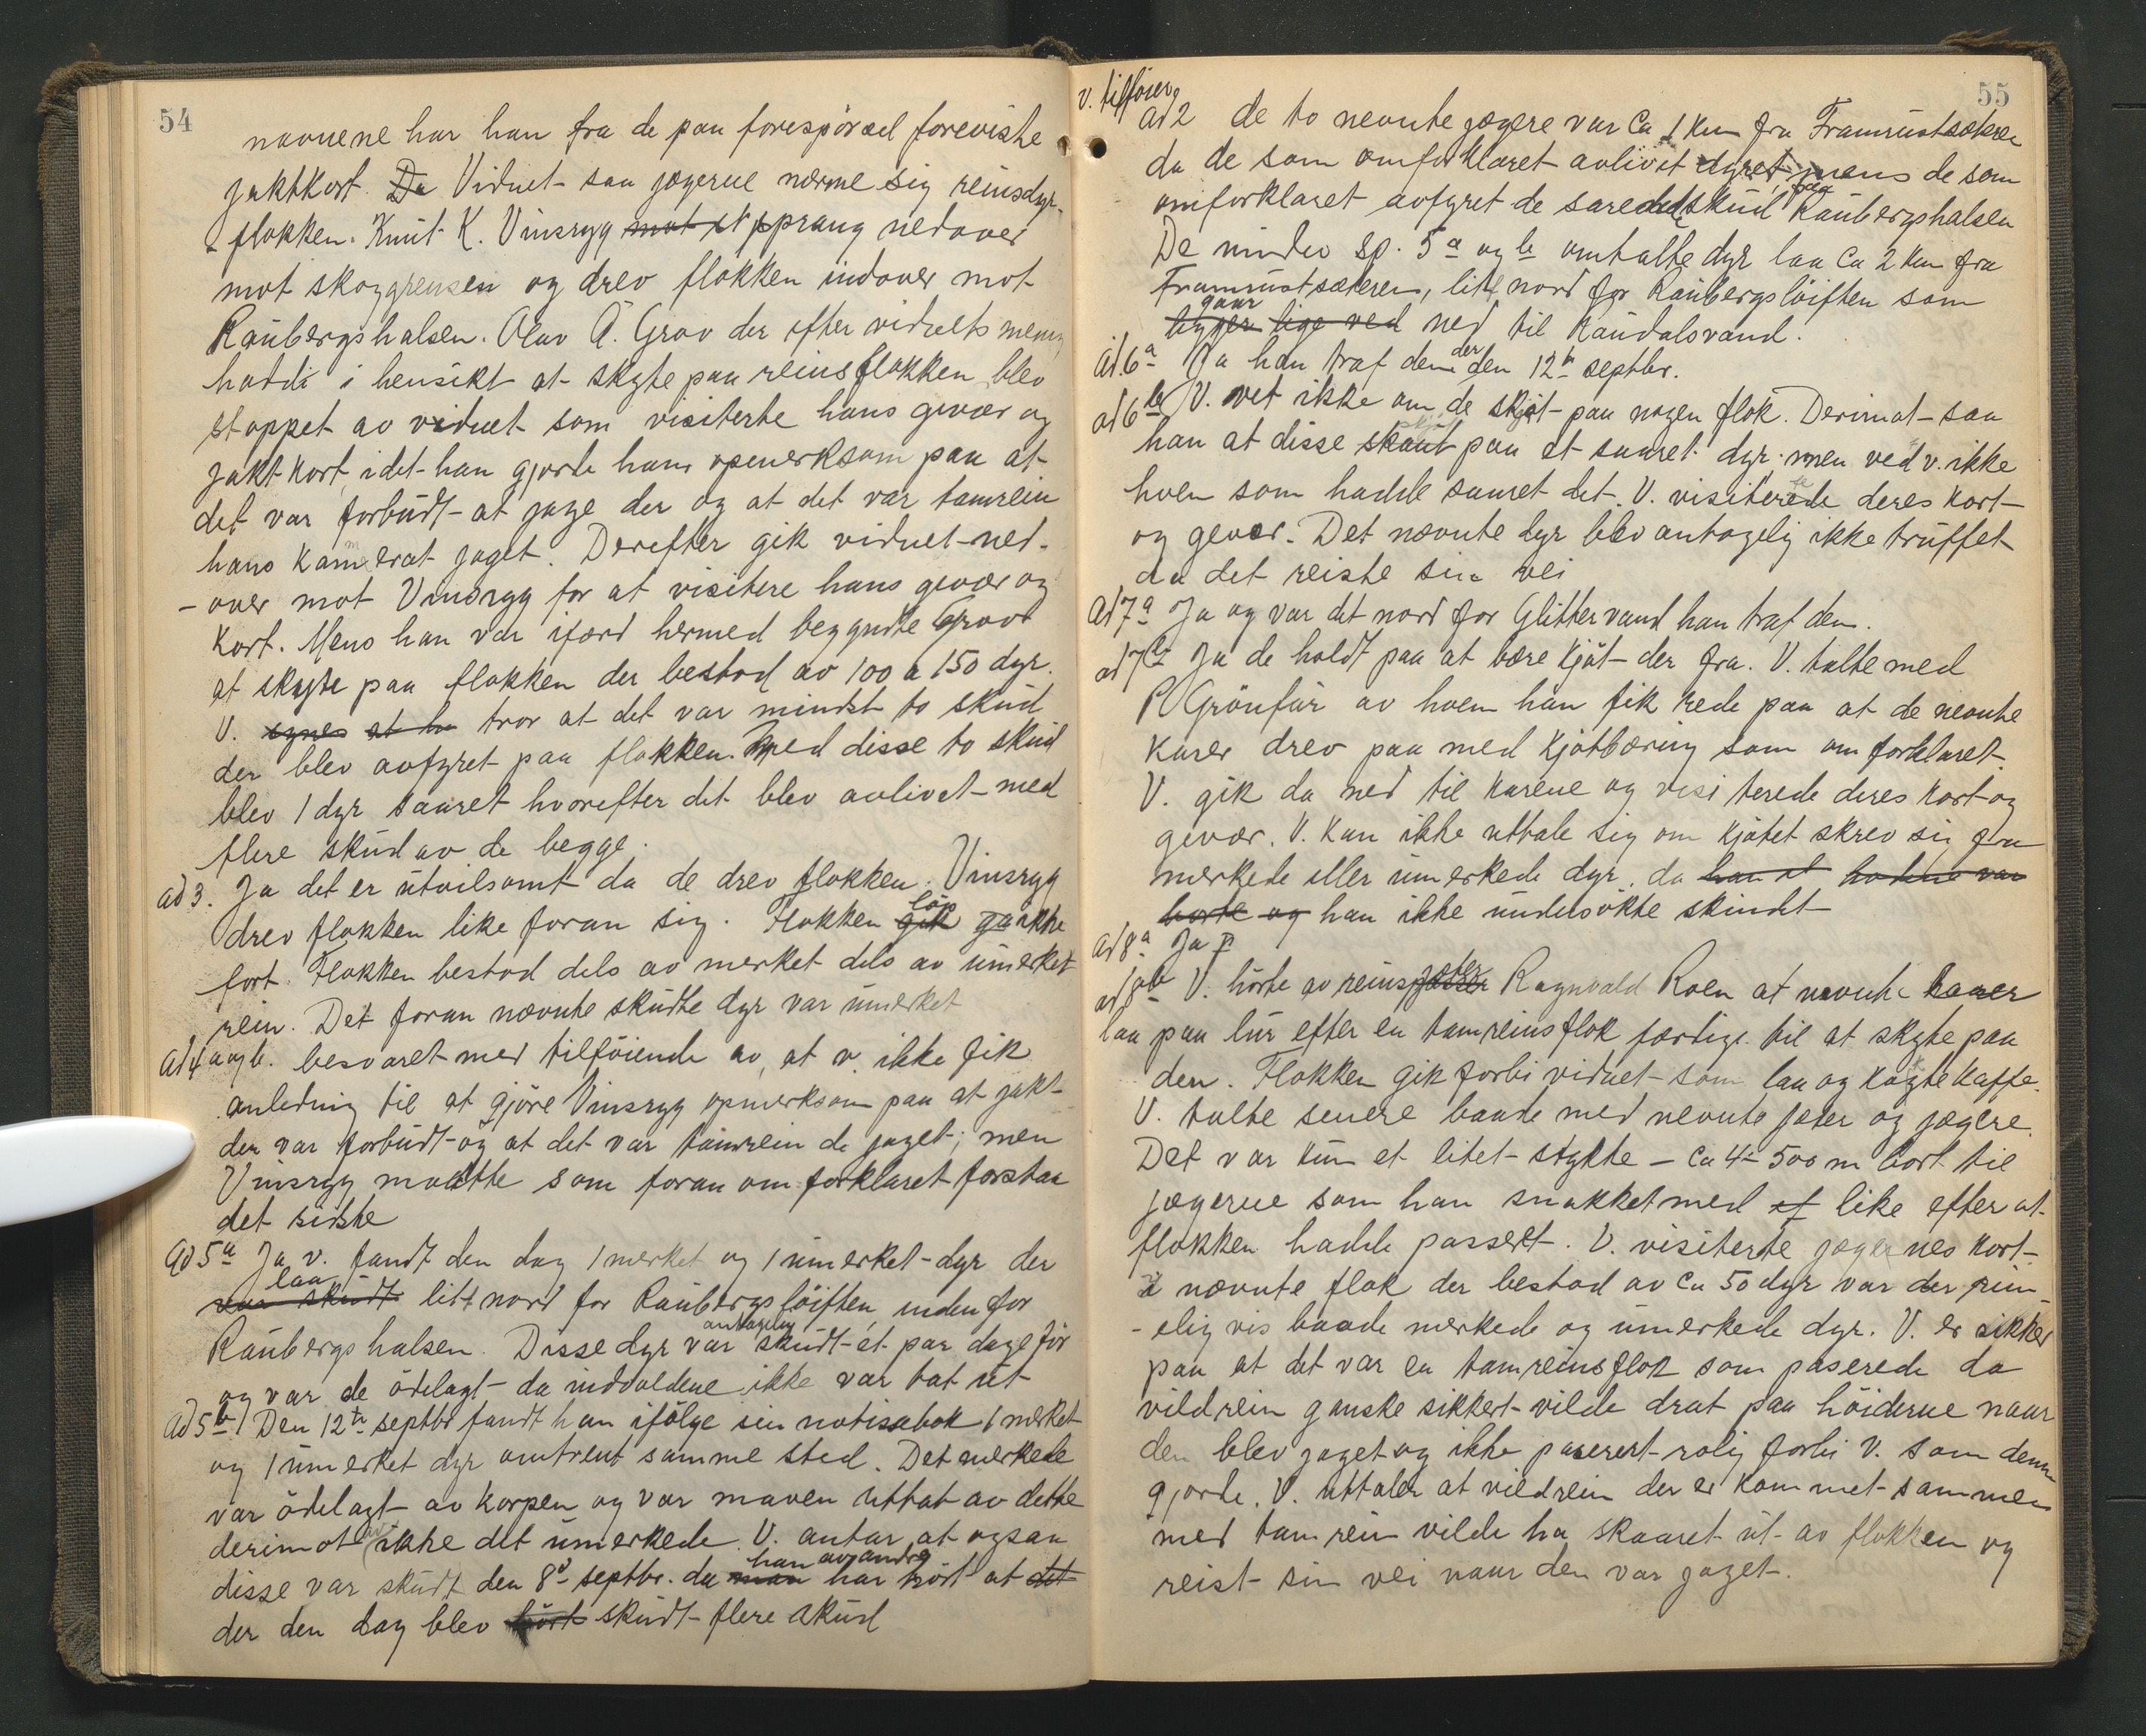 54
navnene har han fra de paa forespörsel foreviste
jaktkort. Da Vidnet saa jægerne nærme sig reinsdyr-
flokken. Knut K. Vinsryg mot st sprang nedover
mot skoggrensen og drev flokken indover mot
Raubergshalsen. Olav A. Grov der efter vidnets mening
hadde i hensikt at skyte paa reinsflokken blev
stoppet av vidnet som visiterte hans gevær og
jaktkort, idet han gjorde ham opmerksom paa at
det var forbudt at jage der og at det var tamrein
hans kamerat jaget. Derefter gik vidnet ned-
-over mot Vinsryg for at visitere hans gevær og
kort. Mens han var ifærd hermed begyndte Grov
at skyte paa flokken der bestod av 100 a 150 dyr.
V. synes at ha tror at det var mindst to skud
der blev avfyret paa flokken. Med disse to skud
blev 1 dyr saaret hvorefter det blev avlivet med
flere skud av de begge.
ad 3. Ja det er utvilsomt da de drev flokken. Vinsryg
löp
drev flokken like foran sig. Flokken gik ga ikke
fort. Flokken bestod dels av merket dels av umerket
rein. Det foran nævnte skutte dyr var umerket
ad 4 a og b. besvaret med tilföiende av, at v. ikke fik
anledning til at gjöre Vinsryg opmerksom paa at jakt
der var forbudt og at det var tamrein de jaget; men
Vinsryg maatte som foran omforklaret forstaa
det sidste
ad 5a Ja v. fandt den dag 1 merket og 1 umerket dyr der
laa
var skudt litt nord for Raubergslöiften, inden for
antagelig
Raubergshalsen. Disse dyr var skudt et par dage för
og var de ödelagt da indvoldene ikke var tat ut
ad 5b Den 12te septbr fandt han ifölge sin notisebok 1 merket
og 1 umerket dyr omtrent samme sted. Det merkede
var ödelagt av korpen og var maven uttat av dette
derimot ikke det umerkede. V. antar at ogsaa
han av andre
disse var skudt den 8de septbr. da man har hört at det
der den dag blev hört skudt flere skud
55
v. tilföier
ad 2 de to nevnte jægere var ca 1 km fra Framrustsæteren
da de som omforklaret avlivet dyret, mens de som
fra
omforklaret avfyret de sarede skud Raubergshalsen
De under sp. 5a og b omtalte dyr laa ca 2 km fra
Framrustsæteren, litt nord for Raubergslöiften som
gaar
ligger lige ved ned til Raudalsvand.
ad. 6a Ja han traf dem der den 12te septbr.
ad 6b V. vet ikke om de skjöt paa nogen flok. Derimot saa
han at disse skaut paa et saaret dyr men ved v. ikke
hvem som hadde saaret det. V. visiterede deres kort
og gevær. Det nævnte dyr blev antagelig ikke truffet
da det reiste sin vei
ad 7a Ja og var det nord for Glittervand han traf dem.
ad 7b Ja de holdt paa at bære kjöt der fra. V. talte med
P. Grönfur av hvem han fik rede paa at de nevnte
karer drev paa med kjötbæring som omforklaret.
V. gik da ned til karene og visiterede deres kort og
gevær. V. kan ikke uttale sig om kjötet skrev sig fra
merkede eller umerkede dyr, da han at hodene var
borte og han ikke undersökte skindet
ad 8a Ja
ad 8b V. hörte av reinsgjæter Ragnvald Roen at nevnte
laa paa lur efter en tamreinsflok færdige til at skyte paa
den. Flokken gik forbi vidnet som laa og kogte kaffe.
V. talte senere baade med nevnte jæter og jægere.
Det var kun et litet stykke – ca 4 – 500 m bort til
jægerne som han snakket med et like efter at
flokken hadde passert. V. visiterte jægernes kort
I nævnte flok der bestod av ca 50 dyr var der rim-
-elig vis baade merkede og umerkede dyr. V. er sikker
paa at det var en tamreinsflok som paserede da
vildrein ganske sikkert vilde drat paa höiderne naar
den blev jaget og ikke paserert rolig forbi V. som denne
gjorde. V. uttaler at vildrein der er kommet sammen
med tamrein vilde ha skaaret ut av flokken og
reist sin vei naar den var jaget.